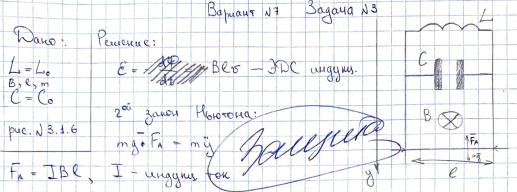 Вариант №7 Задача №3
Дано: Решение:
L = L₀
B, l, m
C = C₀
рис. №3.1.6
ℰ = Blv — ЭДС индукц.
2ой закон Ньютона:
mg + Fₐ = mÿ
Fₐ = IBl, I - индукц ток
Зачтено
L
C
B
Fₐ
mg
y
l